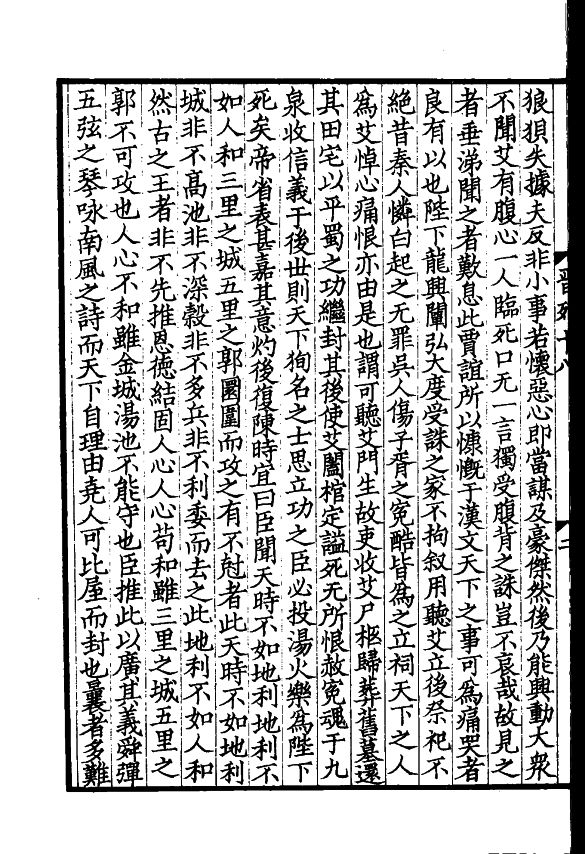 狼狽失據夫反非小事若懷惡心即當謀及豪傑然後乃能興動大衆
不聞艾有腹心一人臨死口无一言獨受腹背之誅豈不哀哉故見之
者垂涕聞之者歎息此賈誼所以慷慨于漢文天下之事可為痛哭者
良有以也陛下龍興闡弘大度受誅之家不拘叙用聽艾立後祭祀不
絕昔秦人憐白起之无罪吳人傷子胥之冤酷皆為之立祠天下之人
為艾悼心痛恨亦由是也謂可聽艾門生故吏收艾尸柩歸葬舊墓還
其田宅以平蜀之功繼封其後使艾闔棺定謚死无所恨赦冤魂于九
泉收信義于後世則天下狥名之士思立功之臣必投湯火樂為陛下
死矣帝省表甚嘉其意灼後復陳時宜曰臣聞天時不如地利地利不
如人和三里之城五里之郭圜圍而攻之有不尅者此天時不如地利
城非不高池非不深穀非不多兵非不利委而去之此地利不如人和
然古之王者非不先推恩德結固人心人心苟和雖三里之城五里之
郭不可攻也人心不和雖金城湯池不能守也臣推此以廣其義舜彈
五弦之琴咏南風之詩而天下自理由堯人可比屋而封也曩者多難